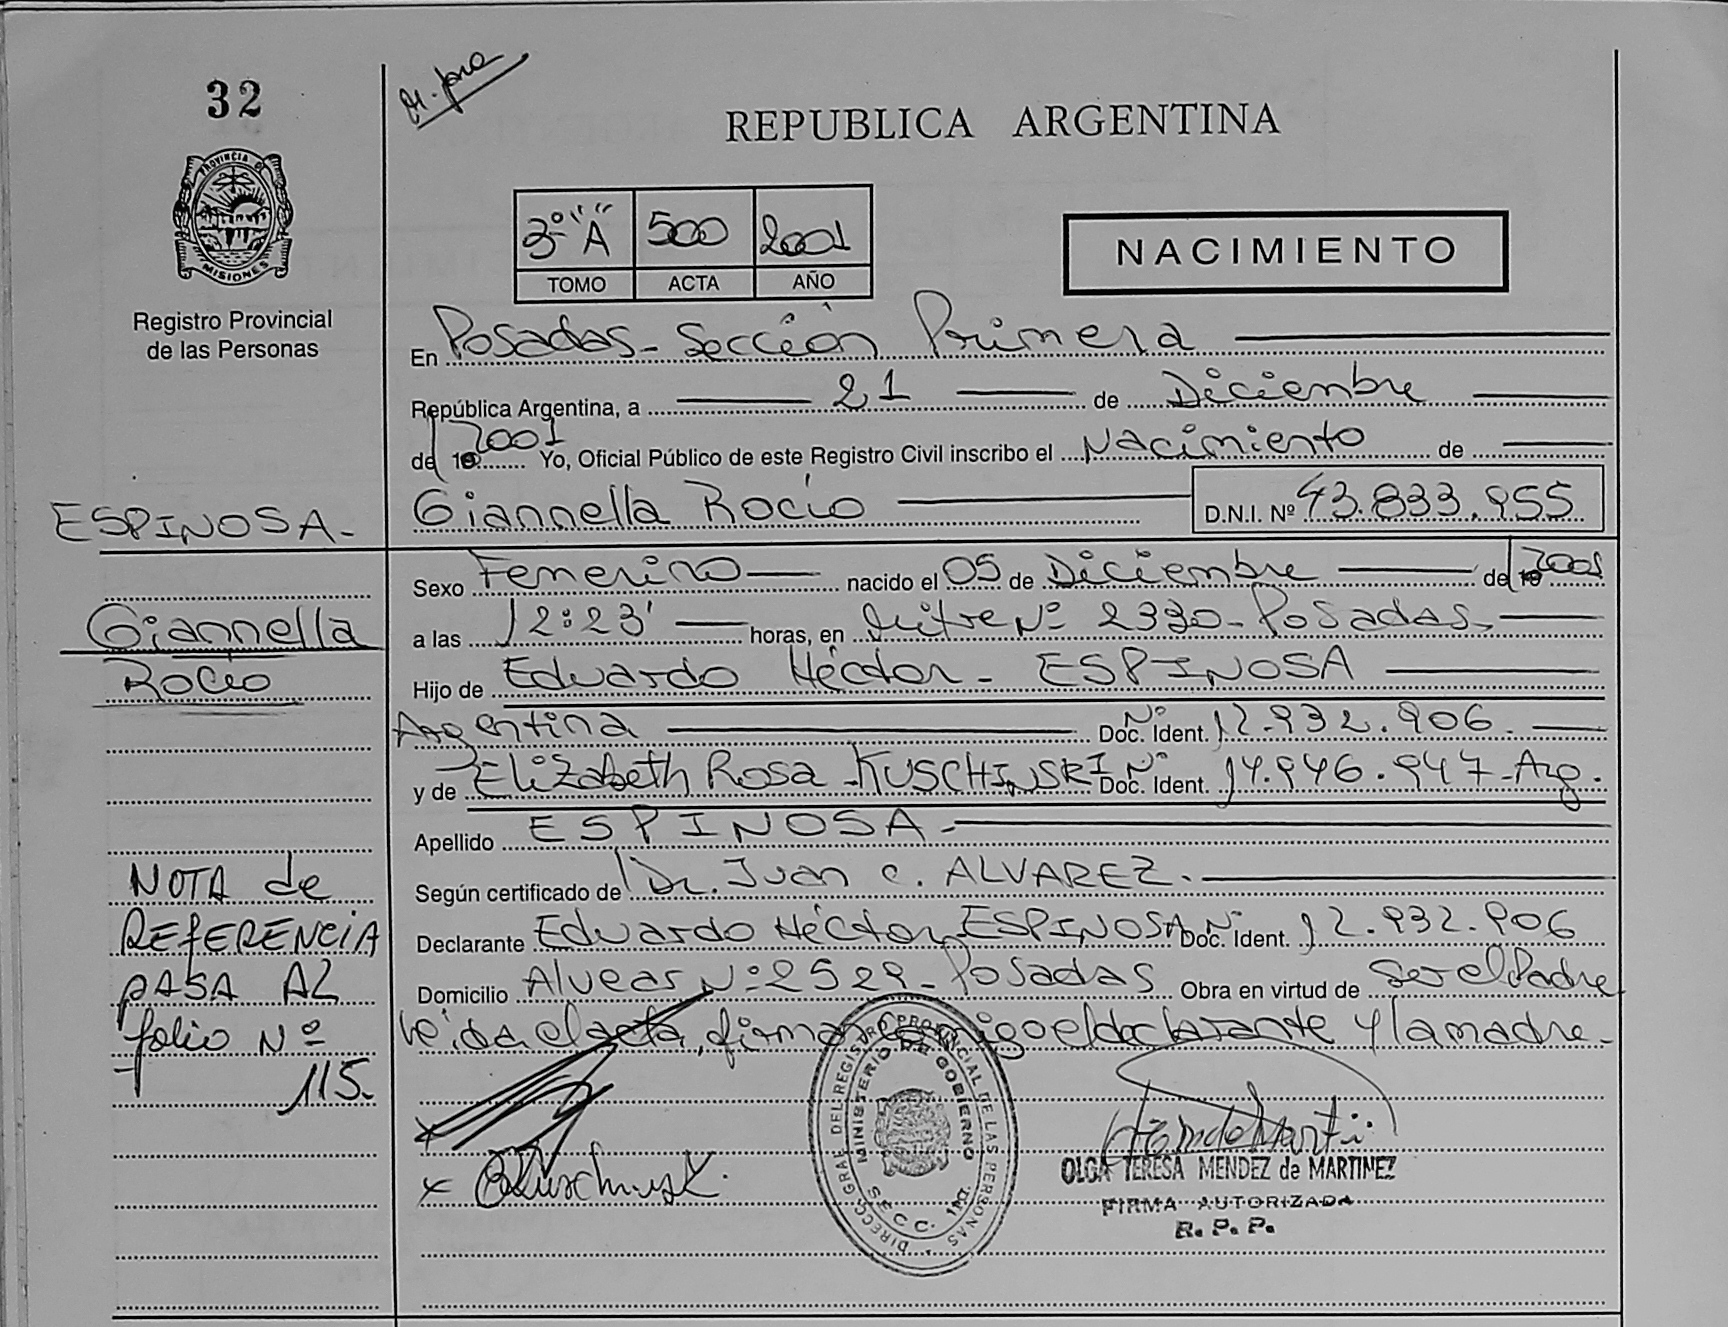 32
PROVINCIA DE
MISIONES
Registro Provincial
de las Personas
REPUBLICA ARGENTINA
3º "A" 500 2001
TOMO ACTA AÑO
NACIMIENTO
En Posadas - Sección Primera
República Argentina, a 21 de Diciembre
de 2001 Yo, Oficial Público de este Registro Civil inscribo el Nacimiento de
Giannella Rocío D.N.I. Nº 43.833.955
ESPINOSA.-
Giannella
Rocío
Sexo Femenino nacido el 05 de Diciembre de 2001
a las 12:23' horas, en Mitre Nº 2330 - Posadas.
Hijo de Eduardo Héctor - ESPINOSA
Argentina Nº Doc. Ident. 12.932.906.
y de Elizabeth Rosa KUSCHINSKI Nº Doc. Ident. 14.946.947 - Arg.
Apellido ESPINOSA.-
Según certificado de Dr. Juan C. ALVAREZ.
Declarante Eduardo Héctor ESPINOSA Nº Doc. Ident. 12.932.906
Domicilio Alvear Nº 2529 - Posadas Obra en virtud de Ser el Padre
leída el acta, firman conmigo el declarante y la madre.-
NOTA de
REFERENCIA
PASA AL
folio Nº
115.
DIRECC. GRAL. DEL REGISTRO PROVINCIAL DE LAS PERSONAS
MINISTERIO DE GOBIERNO
SECC. 1RA.
OLGA TERESA MENDEZ de MARTINEZ
FIRMA AUTORIZADA
R. P. P.